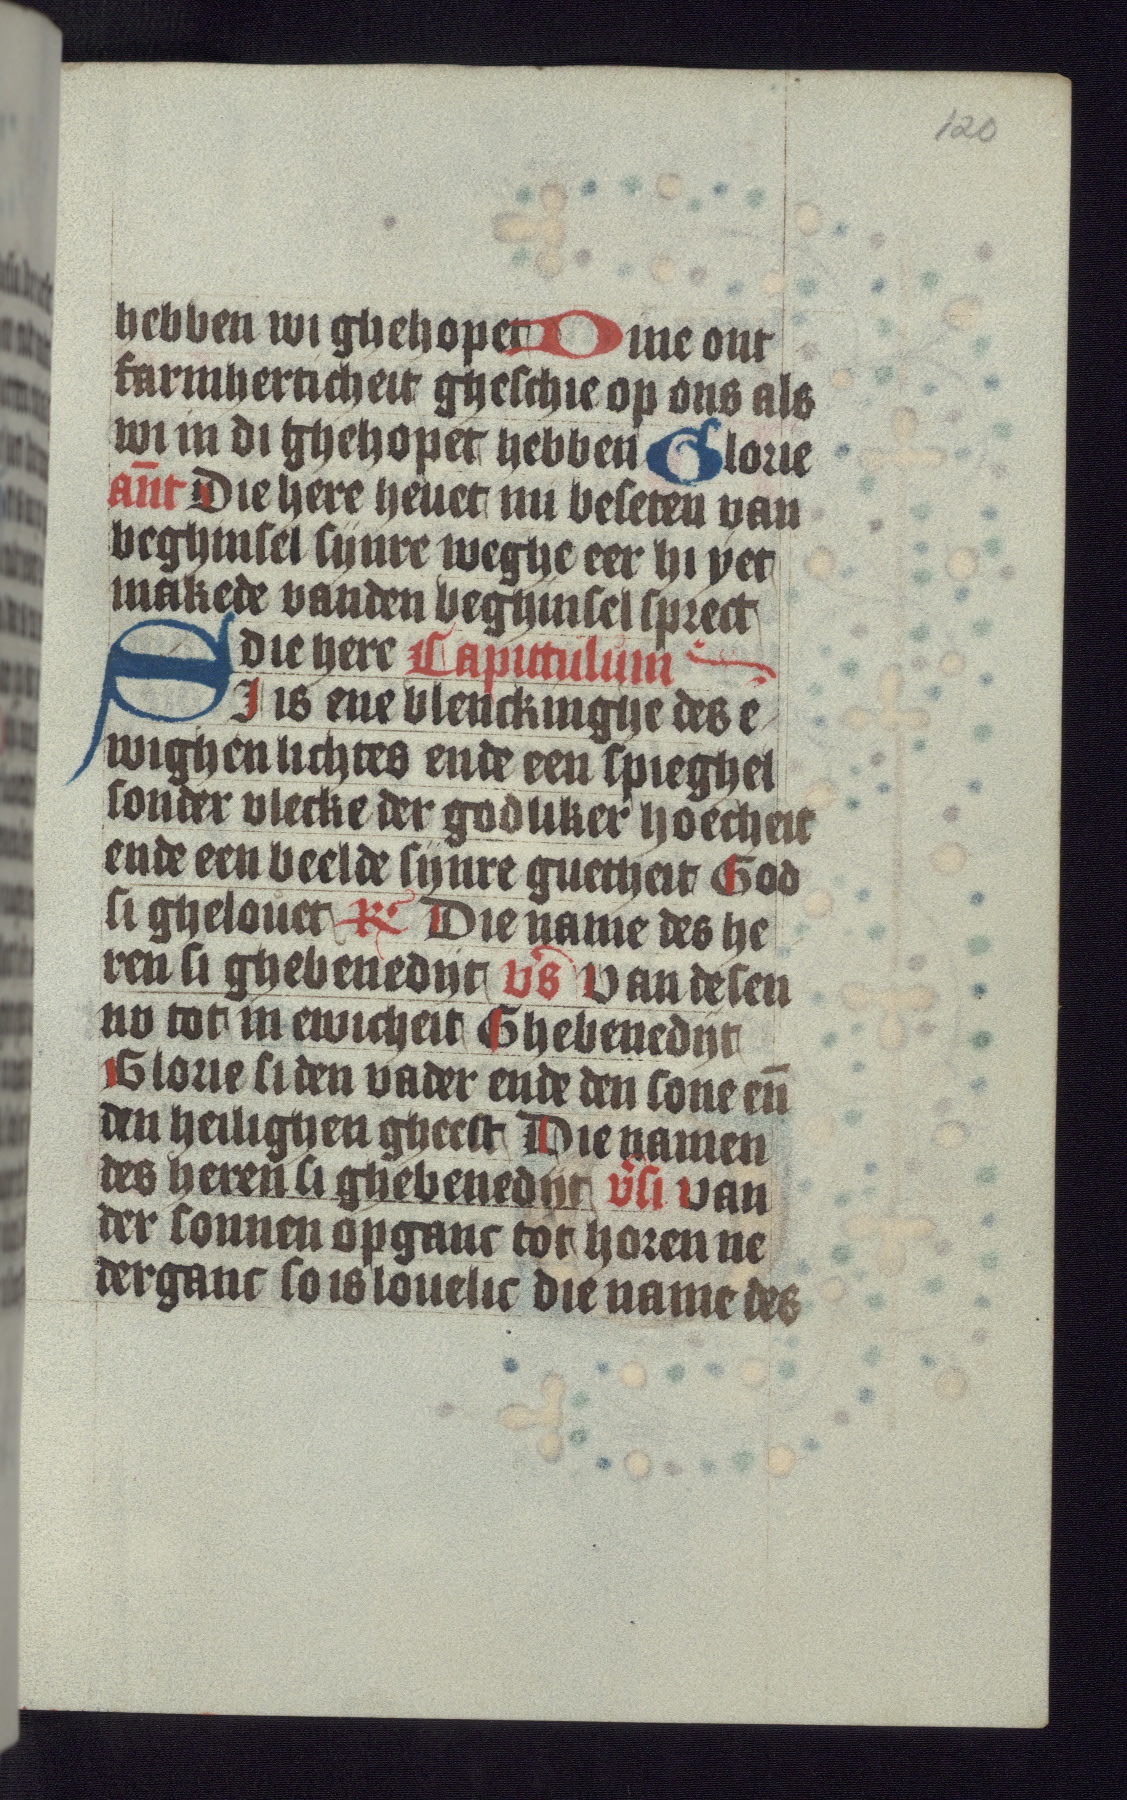 120
hebben wi ghehopet Dine ont
farmherticheit gheschie op ons als
wi in di ghehopet hebben Glorie
an̄t Die here heuet nu beseten van
beghinsel sijnre weghe eer hi yet
makede vanden beghinsel sprect
die here Capittulum
SI is ene blenckinghe des e
wighen lichtes ende een spieghel
sonder vlecke der godliker hoecheit
ende een beelde sijnre guetheit God
si ghelouet R Die name des he
ren si ghebenedijt vs Van desen
nv tot in ewicheit Ghebenedijt
Glorie si den vader ende den sone en̄
den heilighen gheest Die namen
des heren si ghebenedijt v̄si van
der sonnen opganc tot horen ne
derganc so is louelic die name des